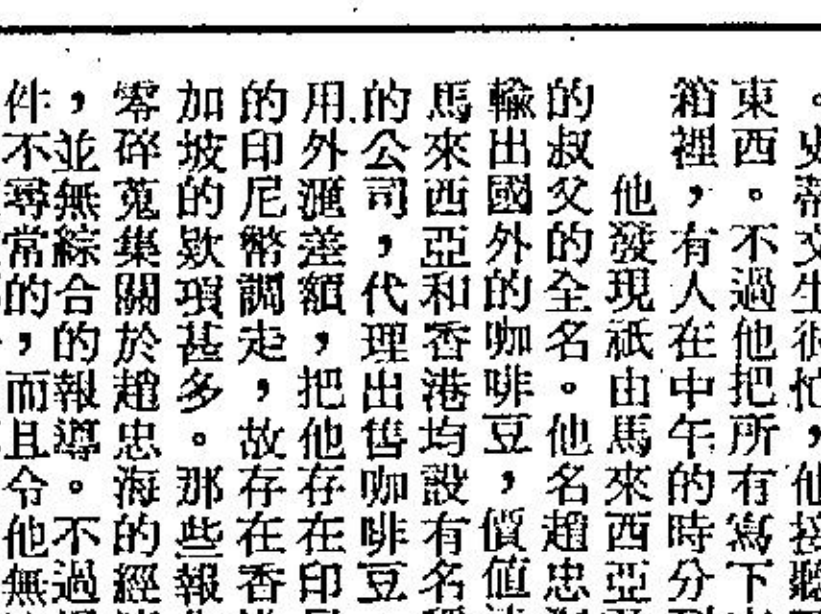 東西。不過他把所有寫下
箱裡，有人在中午的時分
他發現祇由馬來西亞
的叔父的全名。他名趙忠
輸出國外的咖啡豆，價值
馬來西亞和香港均設有名
的公司，代理出售咖啡豆
用外滙差額，把他存在印
的印尼幣調走，故存在香
加坡的欵項甚多。那些報
零碎蒐集關於趙忠海的經
，並無綜合的報導。不過
件不尋常的，而且令他無